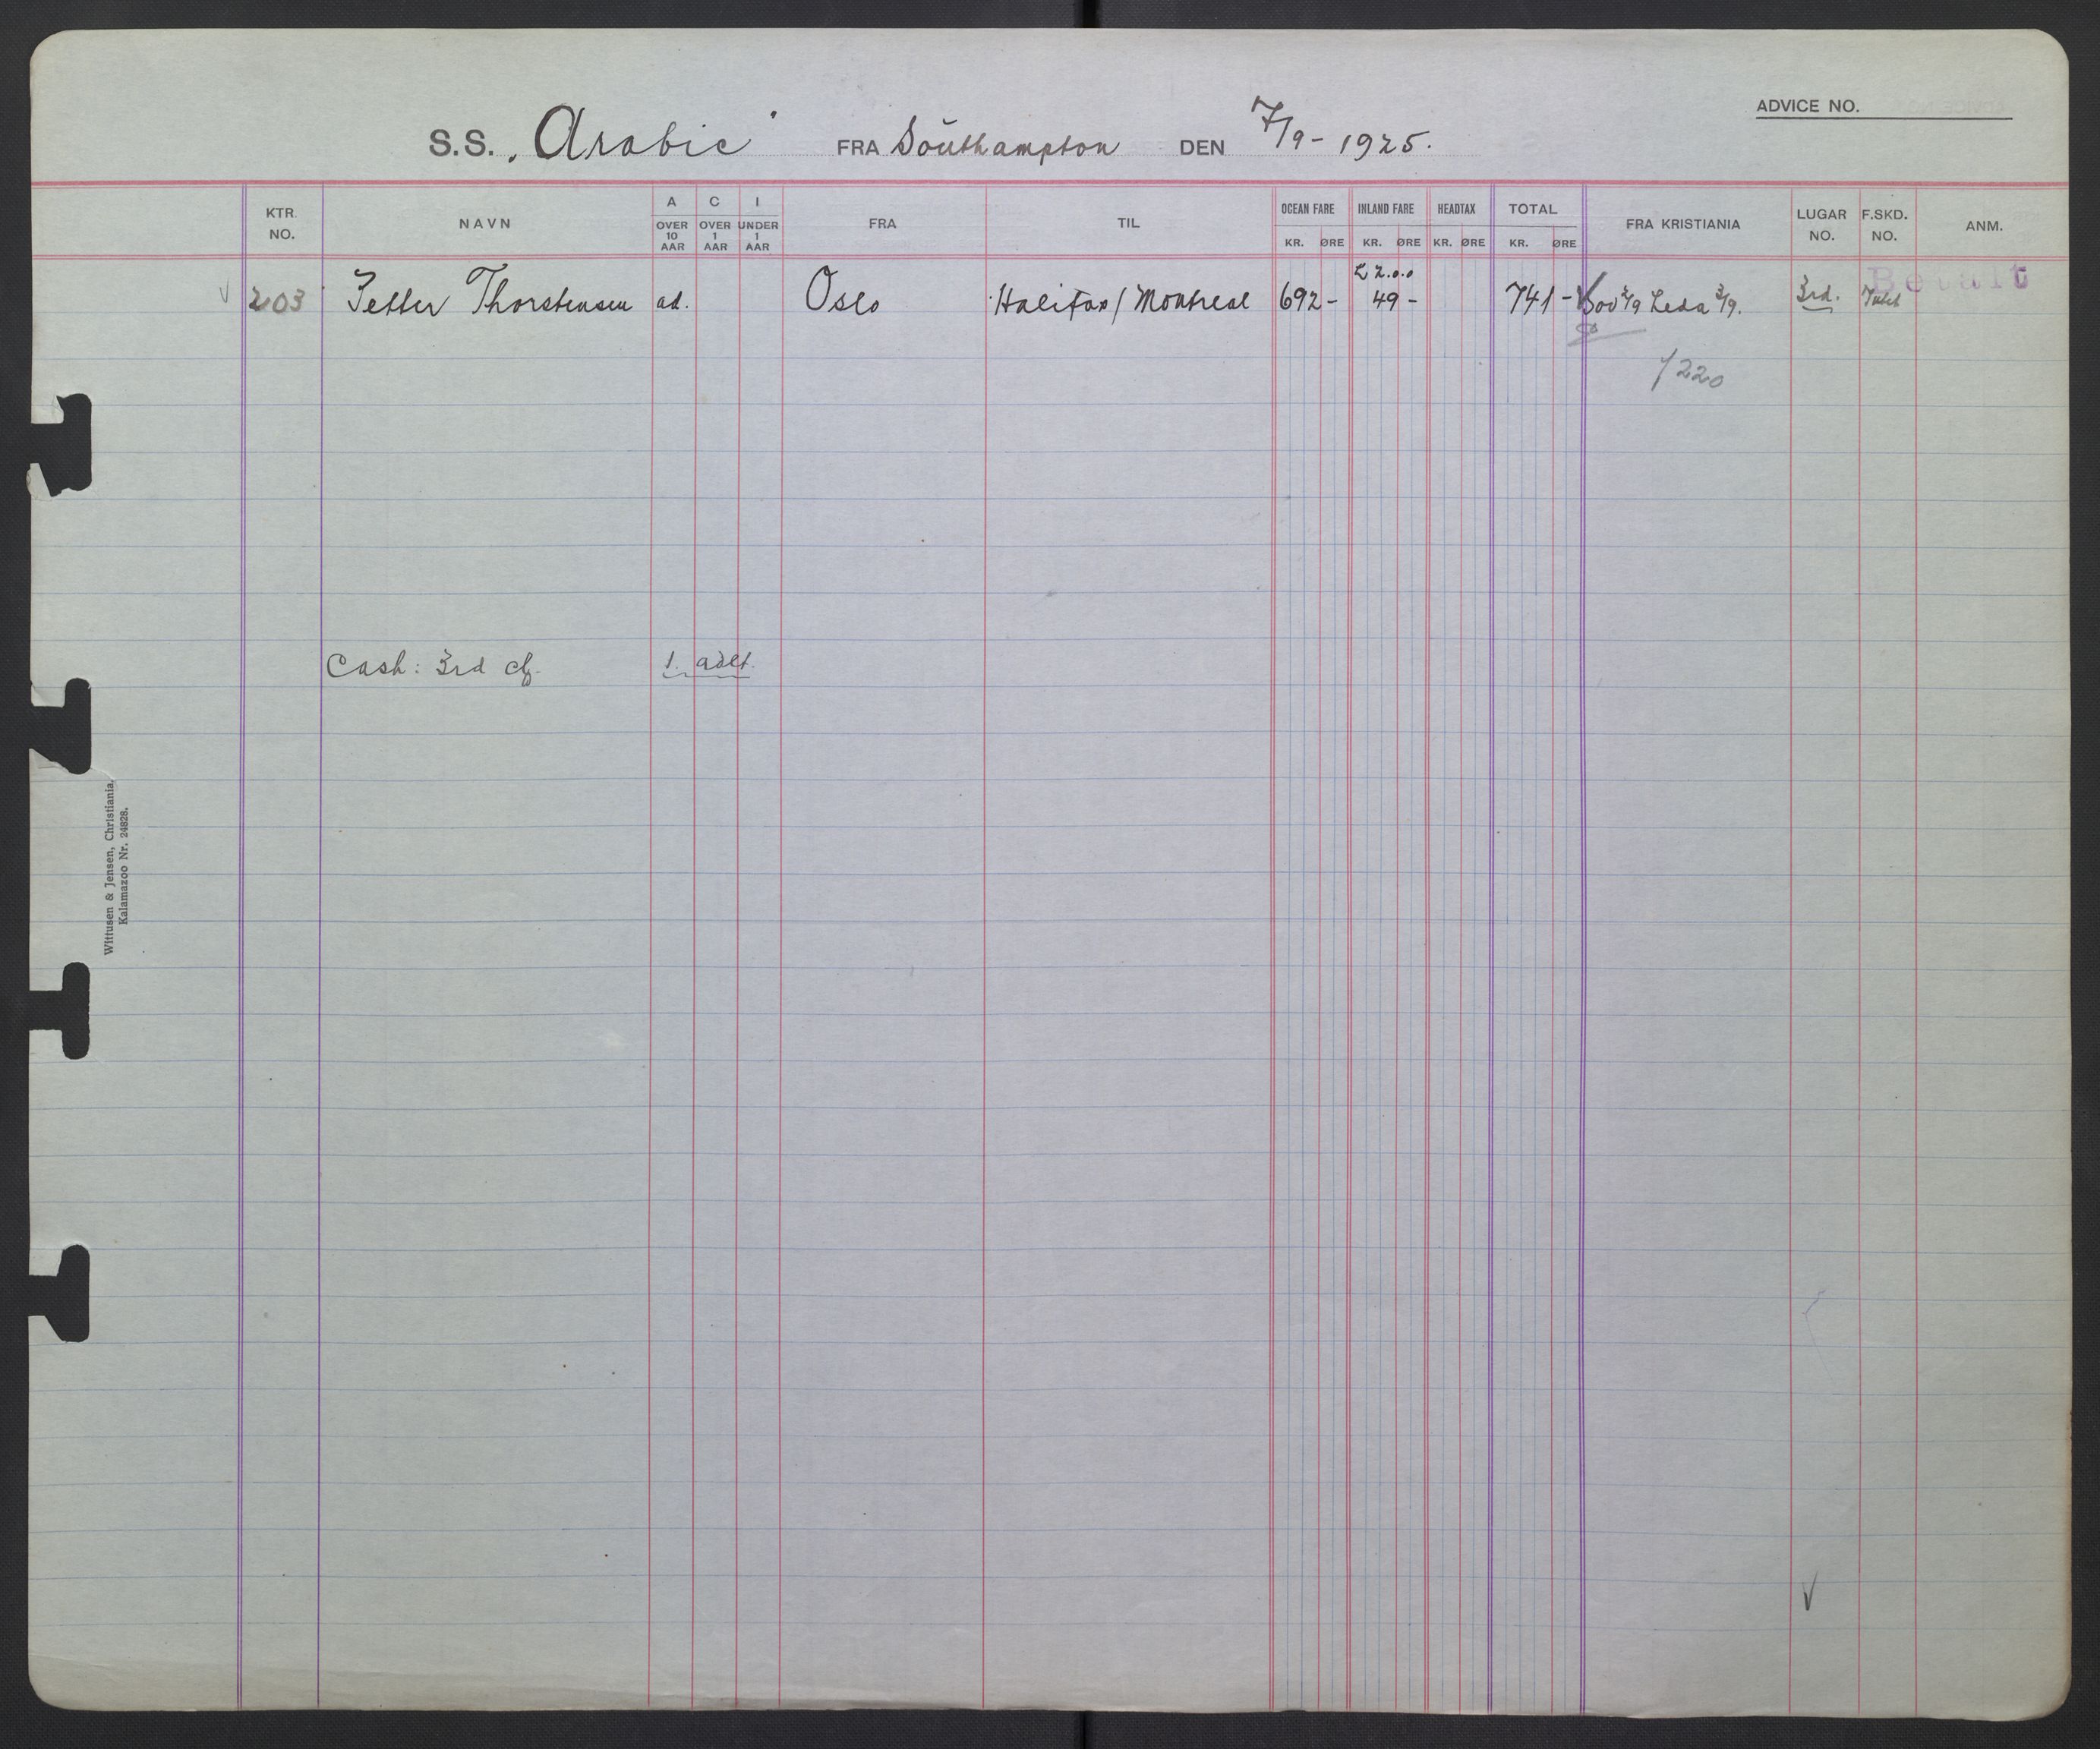 ADVICE NO.
S.S. „Arabic" FRA Southampton DEN 7/9 - 1925.
KTR. NO. NAVN A OVER 10 AAR C OVER 1 AAR I UNDER 1 AAR FRA TIL OCEAN FARE KR. ØRE INLAND FARE KR. ØRE HEADTAX KR. ØRE TOTAL KR. ØRE FRA KRISTIANIA LUGAR NO. F.SKD. NO. ANM.
£ 2.0.0 Betalt
203 Petter Thorstensen ad. Oslo Halifax/Montreal 692- 49- 741- 2/9 Leda 3/9. 3rd.
/220
Cash: 3rd cl. 1. adlt.
Wittusen & Jensen, Christiania.
Kalamazoo Nr. 24828.